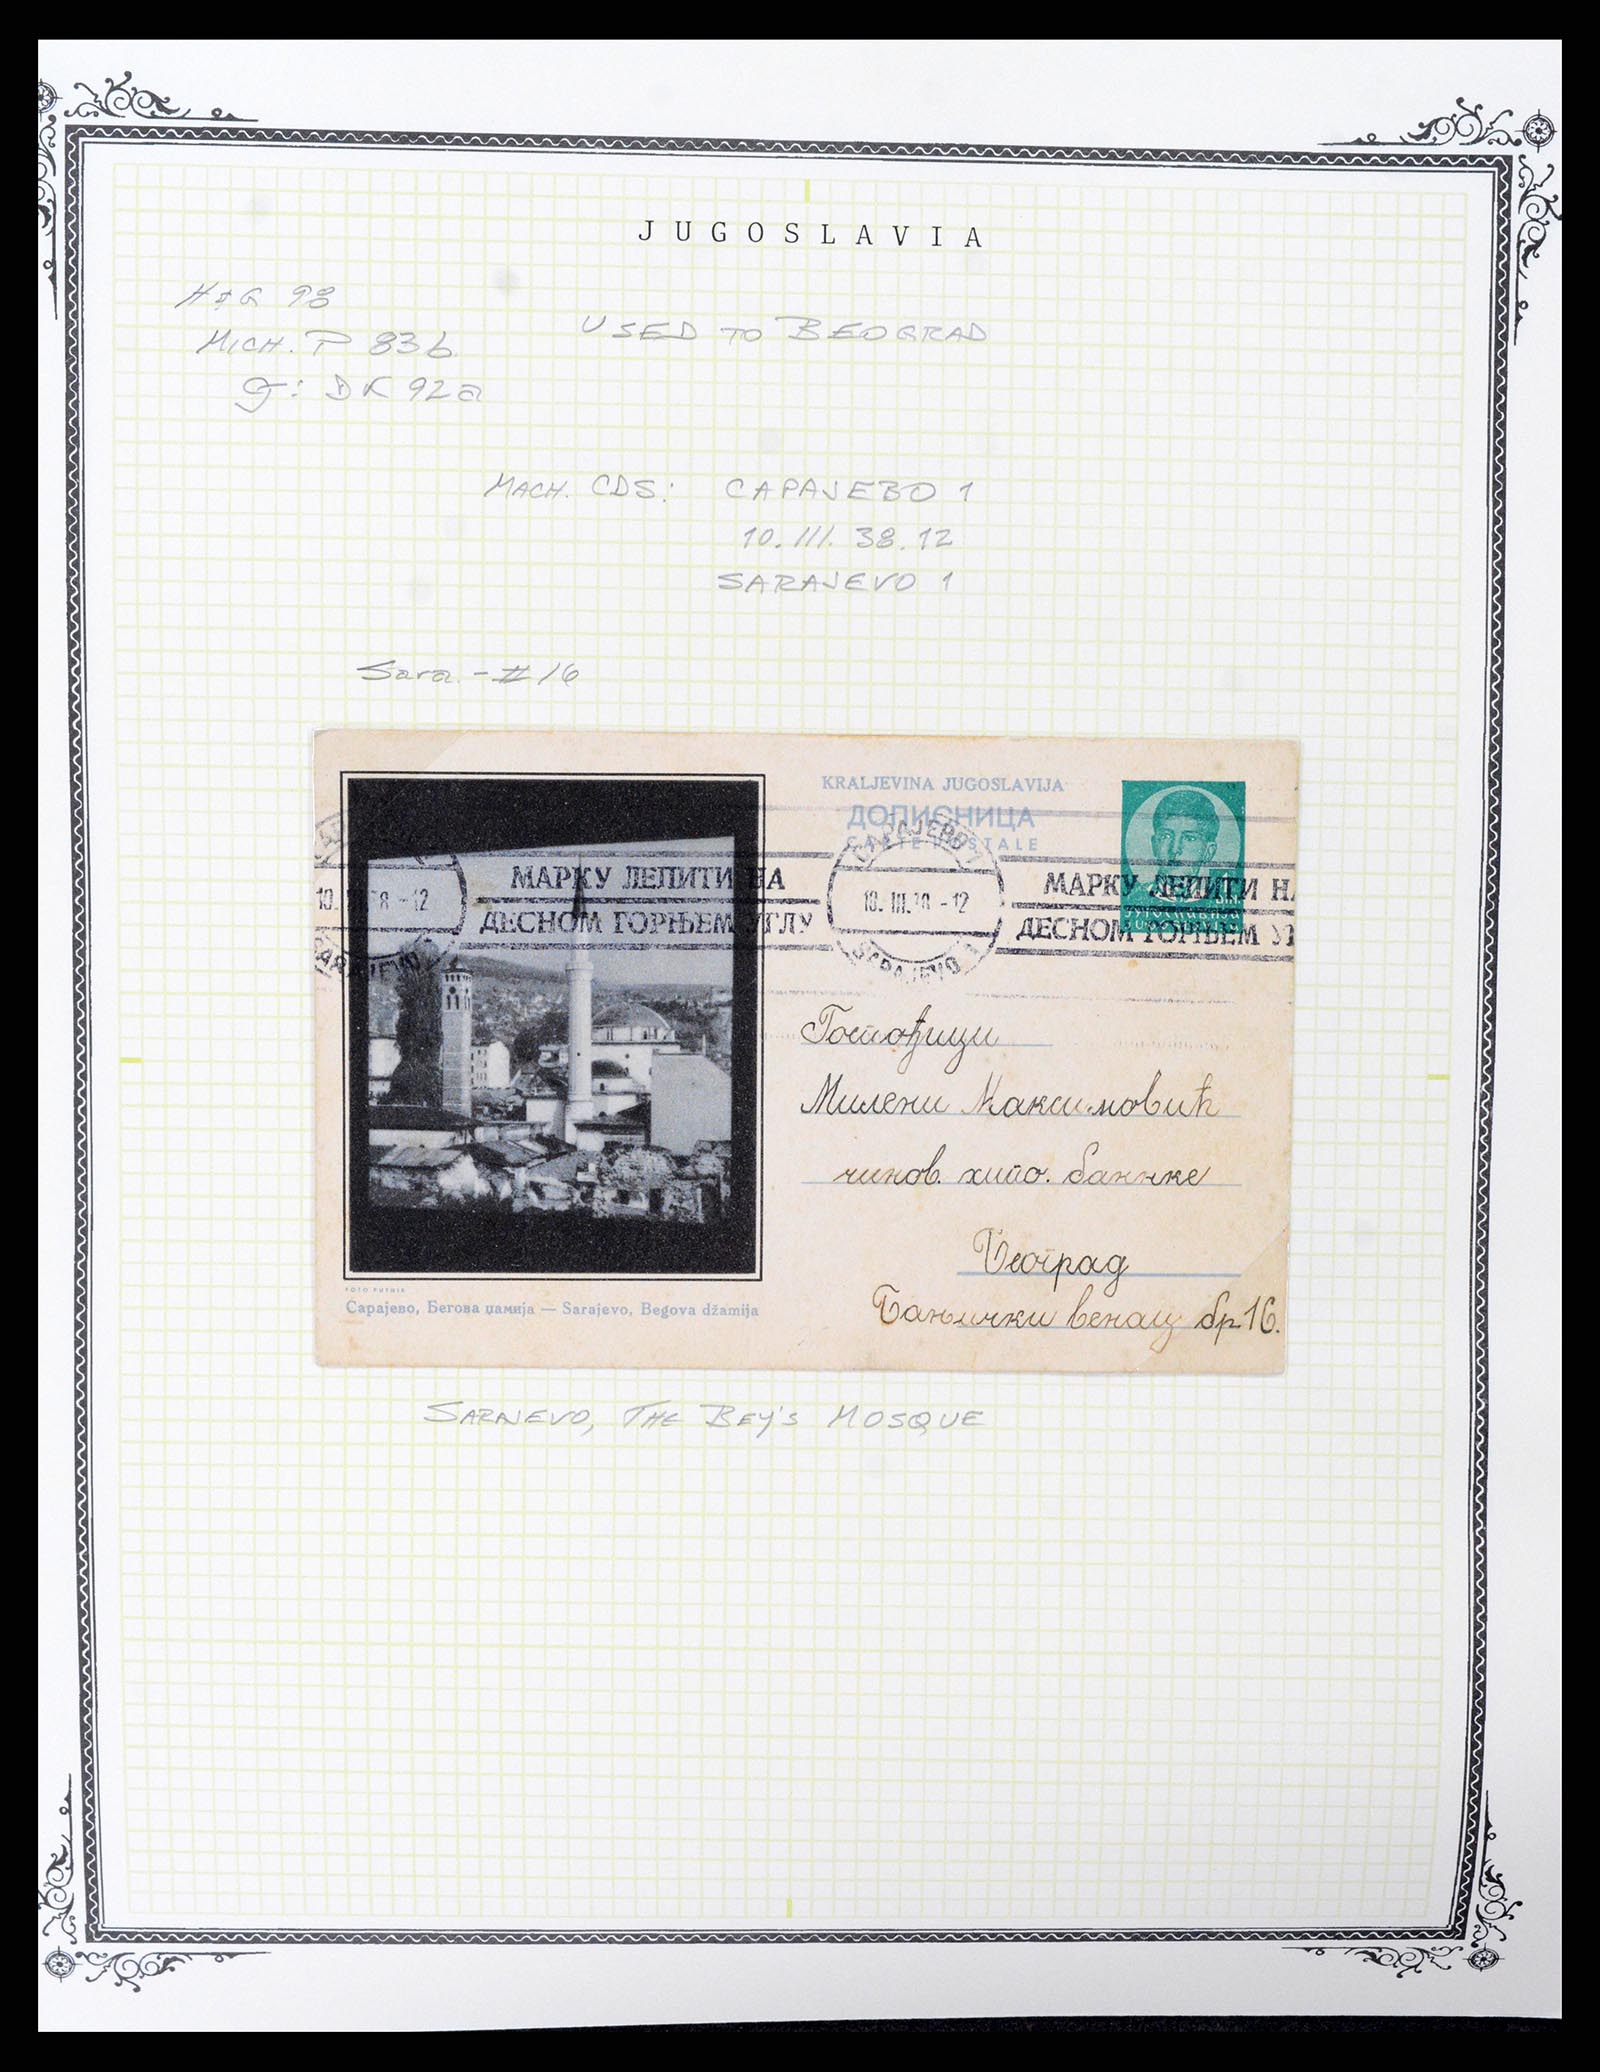 JUGOSLAVIA
H & G 98
MICH. P 83b
USED TO BEOGRAD
G: DK 92a
MACH. CDS: САРАЈЕВО 1
10. III. 38. 12
SARAJEVO 1
Sara. - #16
KRALJEVINA JUGOSLAVIJA
ДОПИСНИЦА
CARTE POSTALE
САРАЈЕВО 1
МАРКУ ЛЕПИТИ НА
ДЕСНОМ ГОРЊЕМ УГЛУ
10. III. 38 - 12
SARAJEVO 1
МАРКУ ЛЕПИТИ НА
ДЕСНОМ ГОРЊЕМ У
Госпођици
Милени Максимовић
чинов. хипо. банке
Београд
Бањички венац бр. 16.
FOTO PUTNIK
Сарајево, Бегова џамија — Sarajevo, Begova džamija
SARAJEVO, THE BEY'S MOSQUE